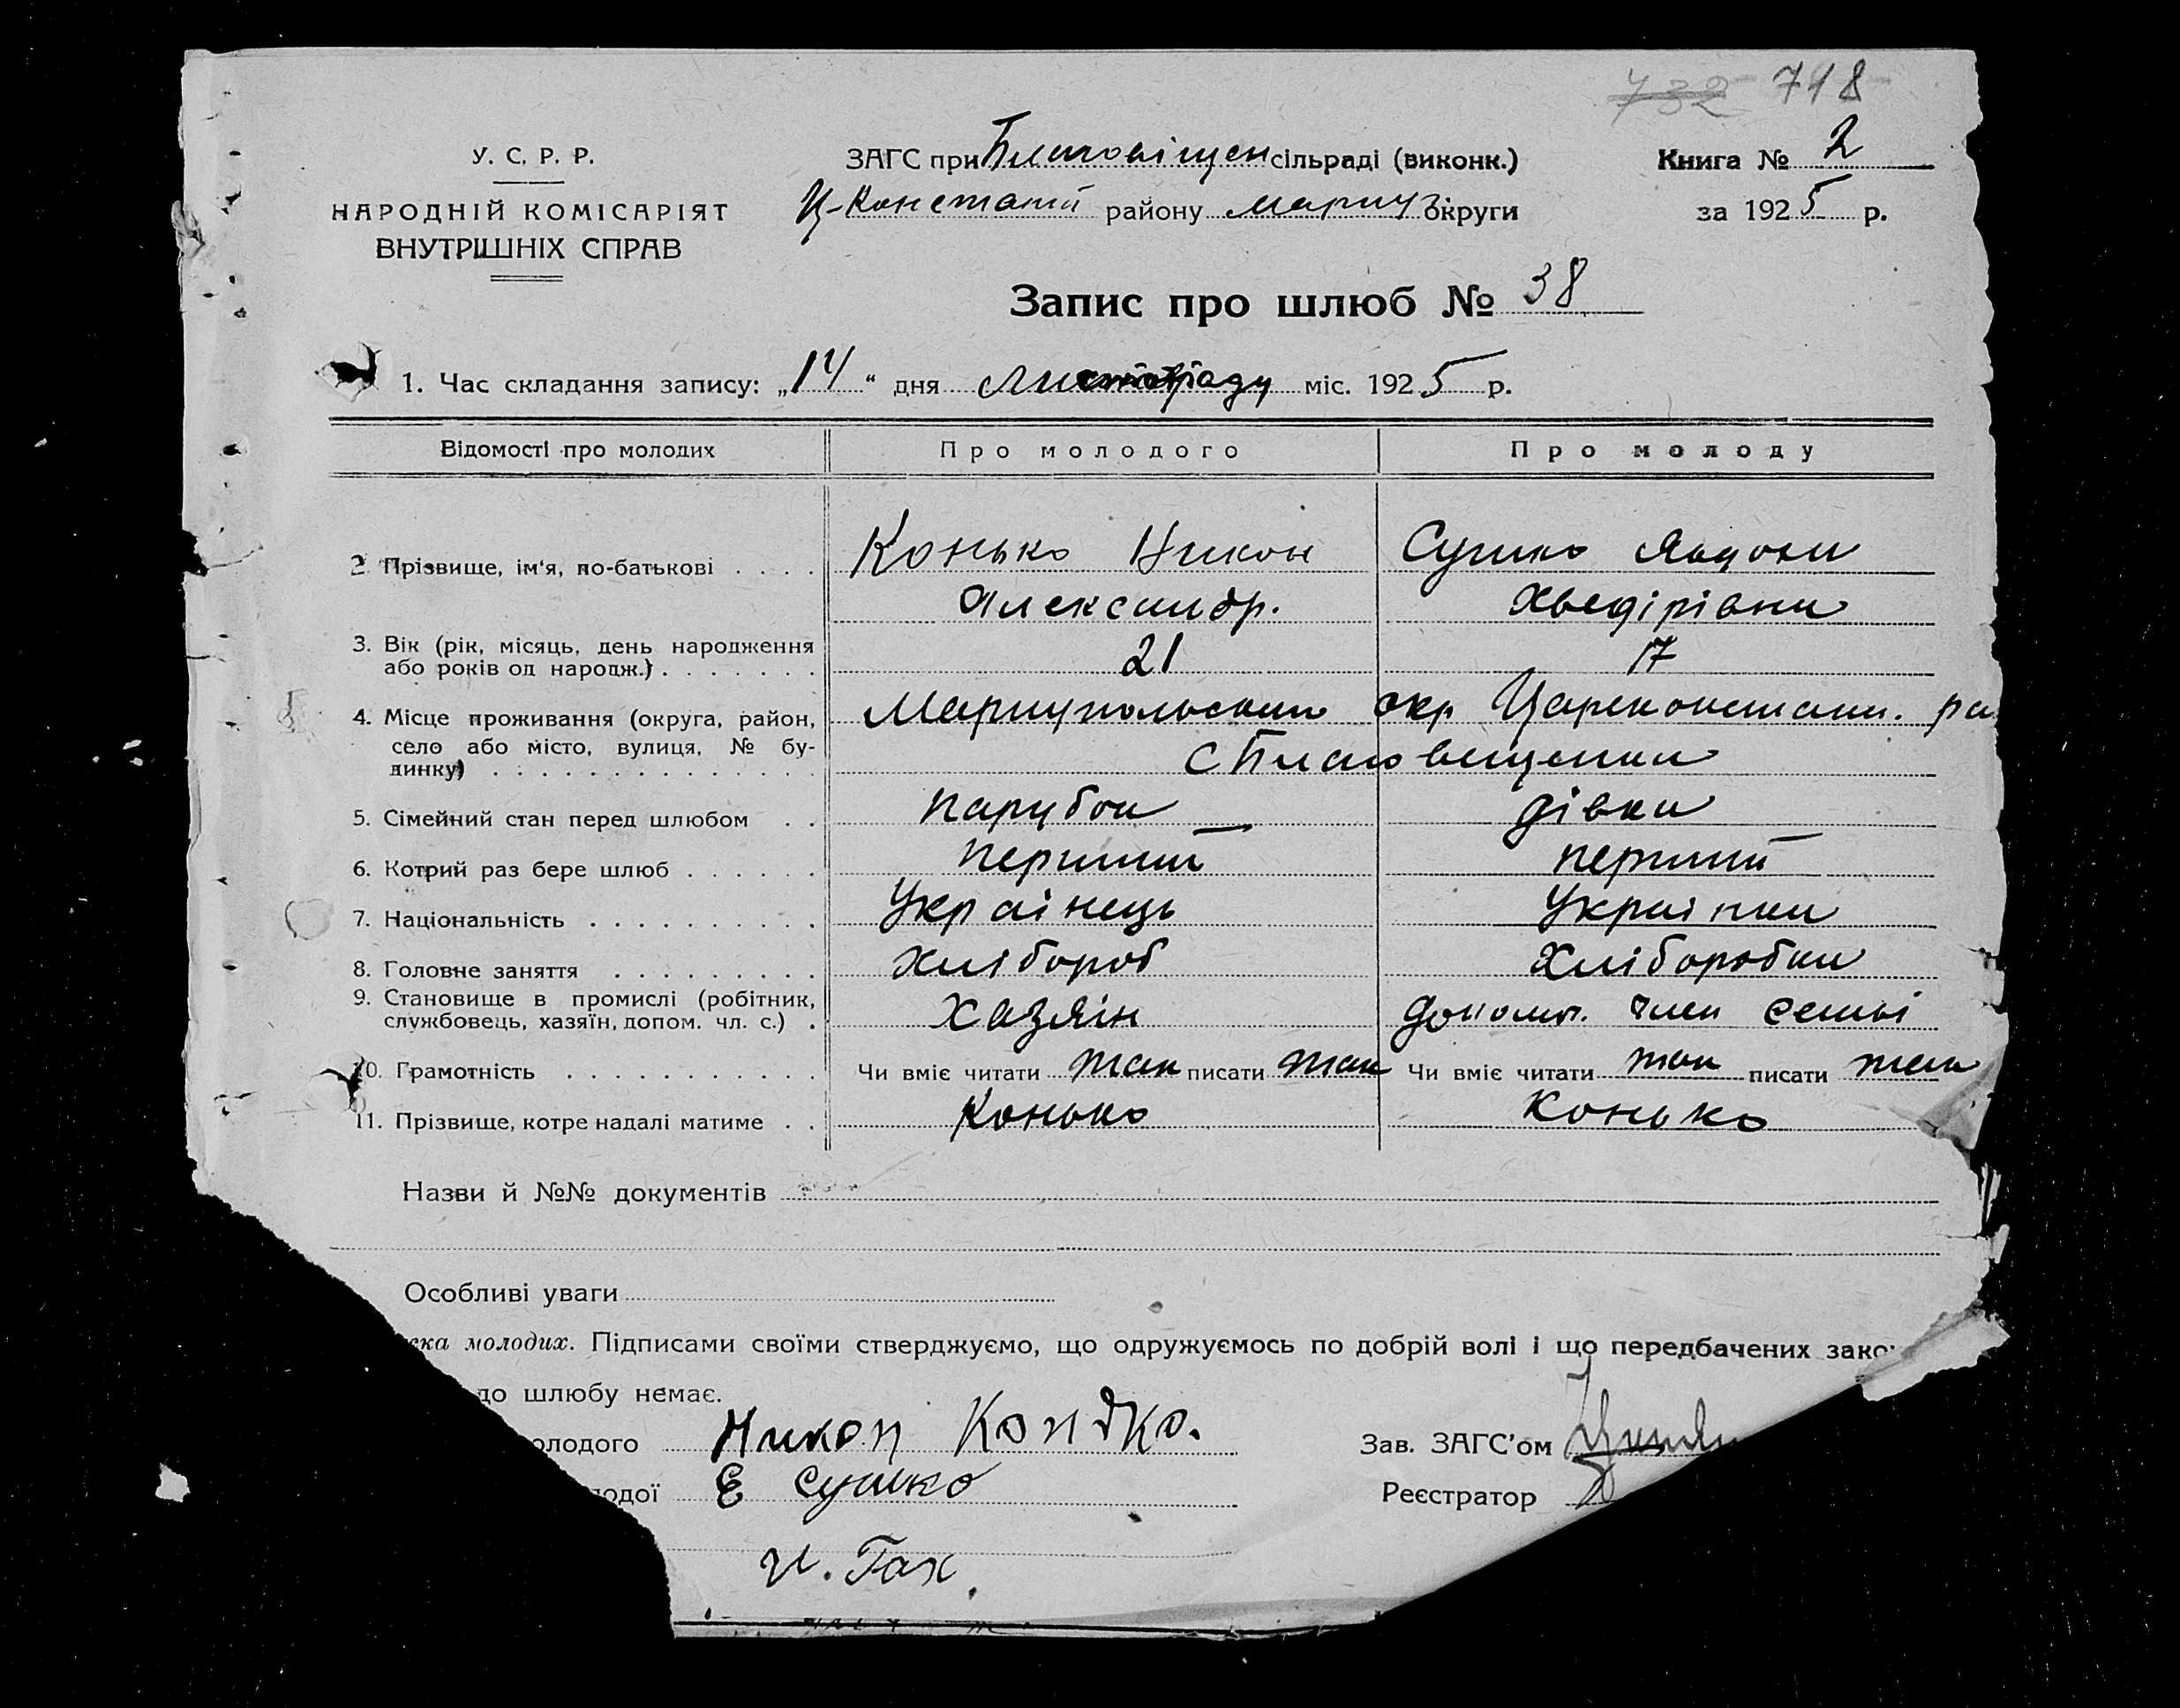 732 718
У. С. Р. Р.
НАРОДНІЙ КОМІСАРІЯТ
ВНУТРІШНІХ СПРАВ
ЗАГС при Благовіщен сільраді (виконк.)
Ц-Констант районy Маріуп округи
Книга № 2
за 1925 р.
Запис про шлюб № 38
1. Час складання запису: „14“ дня Листопаду міс. 1925 р.
Відомості про молодих Про молодого Про молоду
2 Прізвище, ім'я, по-батькові . . . . Конько Никон Сушко Явдоха
Александр. Хведірівна
3. Вік (рік, місяць, день народження
або років од народж.) . . . . . . . 21 17
4. Місце проживання (округа, район,
село або місто, вулиця, № бу-
динку) . . . . . . . . . . . . . . Мариупольская окр Цареконстант. ра
с Благовещенка
5. Сімейний стан перед шлюбом . . парубок дівка
6. Котрий раз бере шлюб . . . . . . перший перший
7. Національність . . . . . . . . . . Українець Українка
8. Головне заняття . . . . . . . . . Хлібороб Хліборобка
9. Становище в промислі (робітник,
службовець, хазяїн, допом. чл. с.) . Хазяін допомг. член семьі
10. Грамотність . . . . . . . . . . . Чи вміє читати так писати так Чи вміє читати так писати так
11. Прізвище, котре надалі матиме . . Конько Конько
Назви й №№ документів
Особливі уваги
ска молодих. Підписами своїми стверджуємо, що одружуємось по добрій волі і що передбачених зако
до шлюбу немає.
олодого Никон Конько.
Зав. ЗАГС'ом
одої Е Сушко
Реєстратор
И. Гах.